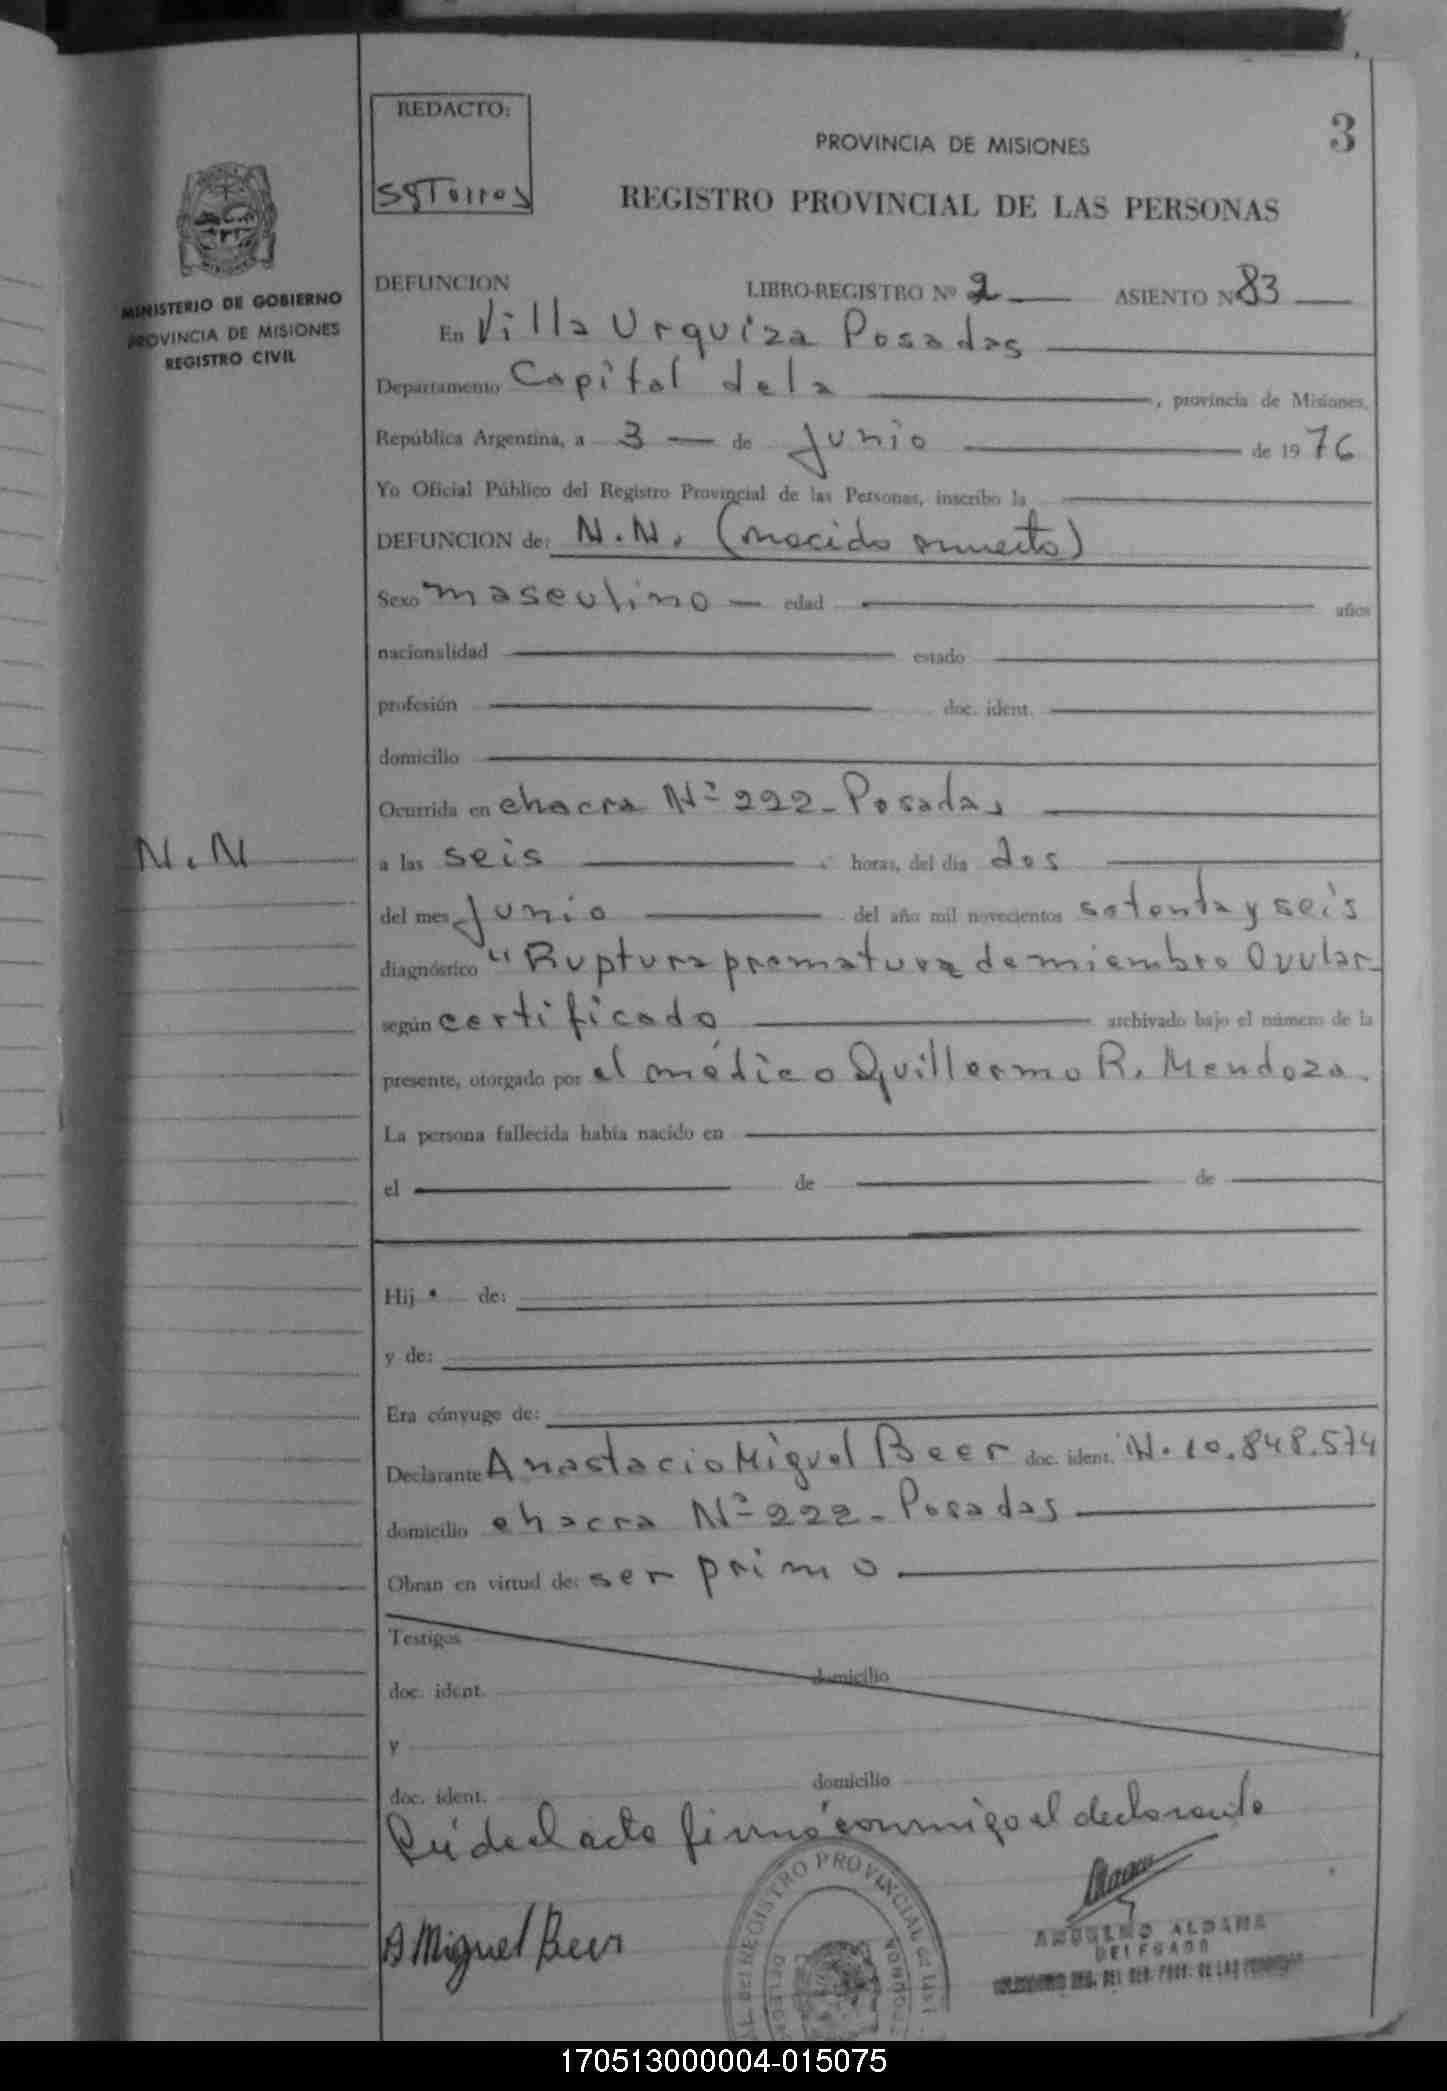 REDACTO:
3
PROVINCIA DE MISIONES
REGISTRO PROVINCIAL DE LAS PERSONAS
MISIONES
MINISTERIO DE GOBIERNO
PROVINCIA DE MISIONES
REGISTRO CIVIL
DEFUNCION LIBRO-REGISTRO Nº 2 ASIENTO Nº 83
En Villa Urquiza Posadas
Departamento Capital de la , provincia de Misiones,
República Argentina, a 3 de Junio de 1976
Yo Oficial Público del Registro Provincial de las Personas, inscribo la
DEFUNCION de: N.N. (nacido muerto)
Sexo masculino edad años
nacionalidad estado
profesión doc. ident.
domicilio
Ocurrida en chacra Nº 222 - Posadas
N.N
a las seis horas, del día dos
del mes Junio del año mil novecientos setenta y seis
diagnóstico "Ruptura prematura de miembro Ovular
según certificado archivado bajo el número de la
presente, otorgado por el médico Guillermo R. Mendoza.
La persona fallecida había nacido en
el de de
Hij de:
y de:
Era cónyuge de:
Declarante Anastacio Miguel Beer doc. ident. N. 10.848.574
domicilio chacra Nº 222 - Posadas
Obran en virtud de: ser primo
Testigos
doc. ident. domicilio
y
doc. ident. domicilio
del acta firmó conmigo el declarante
A Miguel Beer
DEL REGISTRO PROVINCIAL de las
ALDAMA
DELEGADO
170513000004-015075